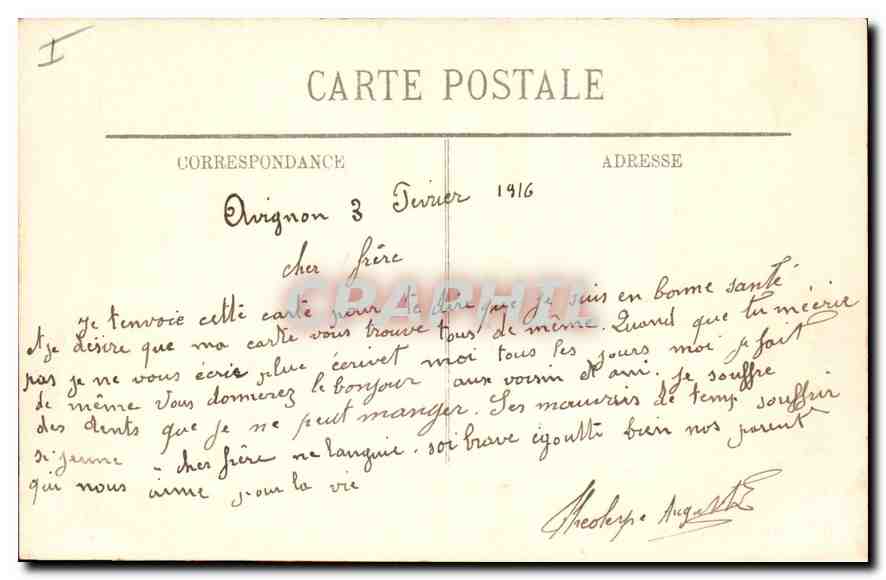 I
CARTE POSTALE
CORRESPONDANCE
ADRESSE
Avignon 3 Fevrier 1916
cher frère
CPAPHIL
Je t'envoie cette carte pour te dire que je suis en bonne santé
et je désire que ma carte vous trouve tous de même. Quand que tu méérie
pas je ne vous écrie plue écrivet moi tous les jours moi je fait
de même vous donnerez le bonjour aux voisin et ami. Je souffre
des dents que je ne peut manger. Ses mauveris de temp souffrir
si jeune - cher frère ne languie. soi brave égoutte bien nos parent
qui nous aime pour la vie
Auguste